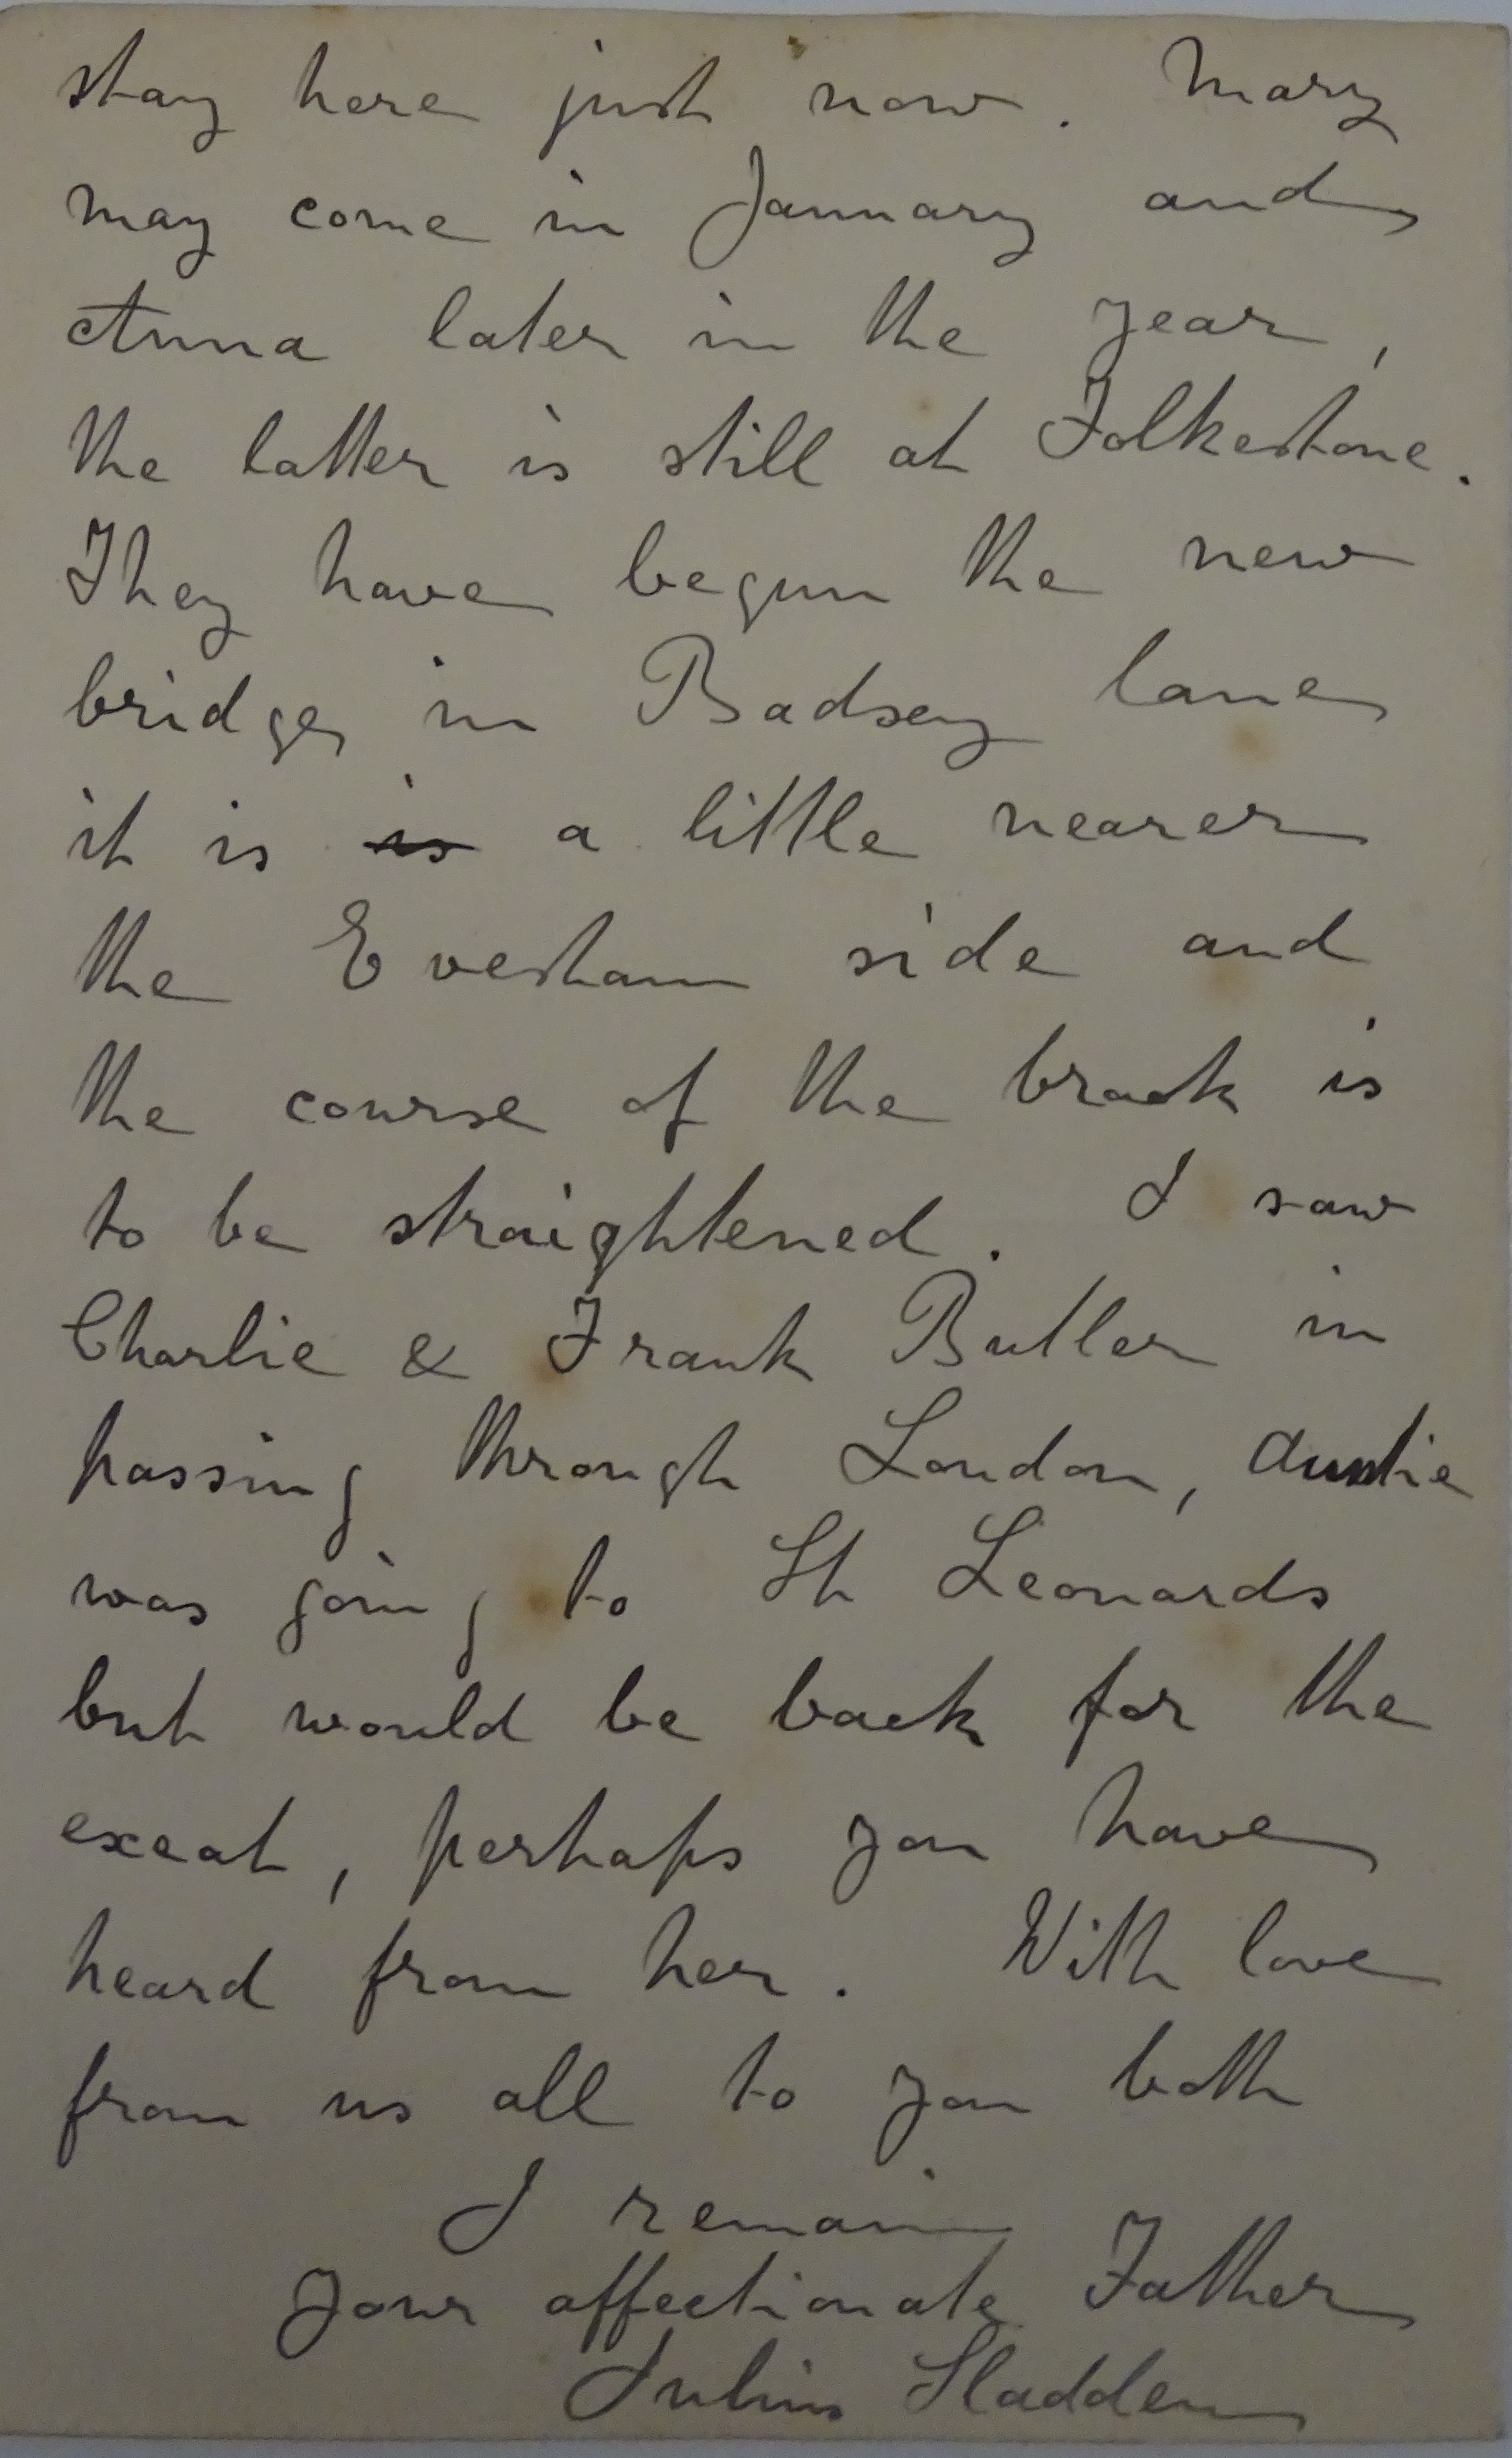 stay here just now. Mary
may come in January and
Anna later in the year,
the latter is still at Folkestone.
They have begun the new
bridge in Badsey lane
it is is a little nearer
the Evesham side and
the course of the brook is
to be straightened. I saw
Charlie & Frank Butler in
passing through London, Auntie
was going to St Leonards
but would be back for the
exeat, perhaps you have
heard from her. With love
from us all to you both
I remain
Your affectionate Father
Julius Sladden